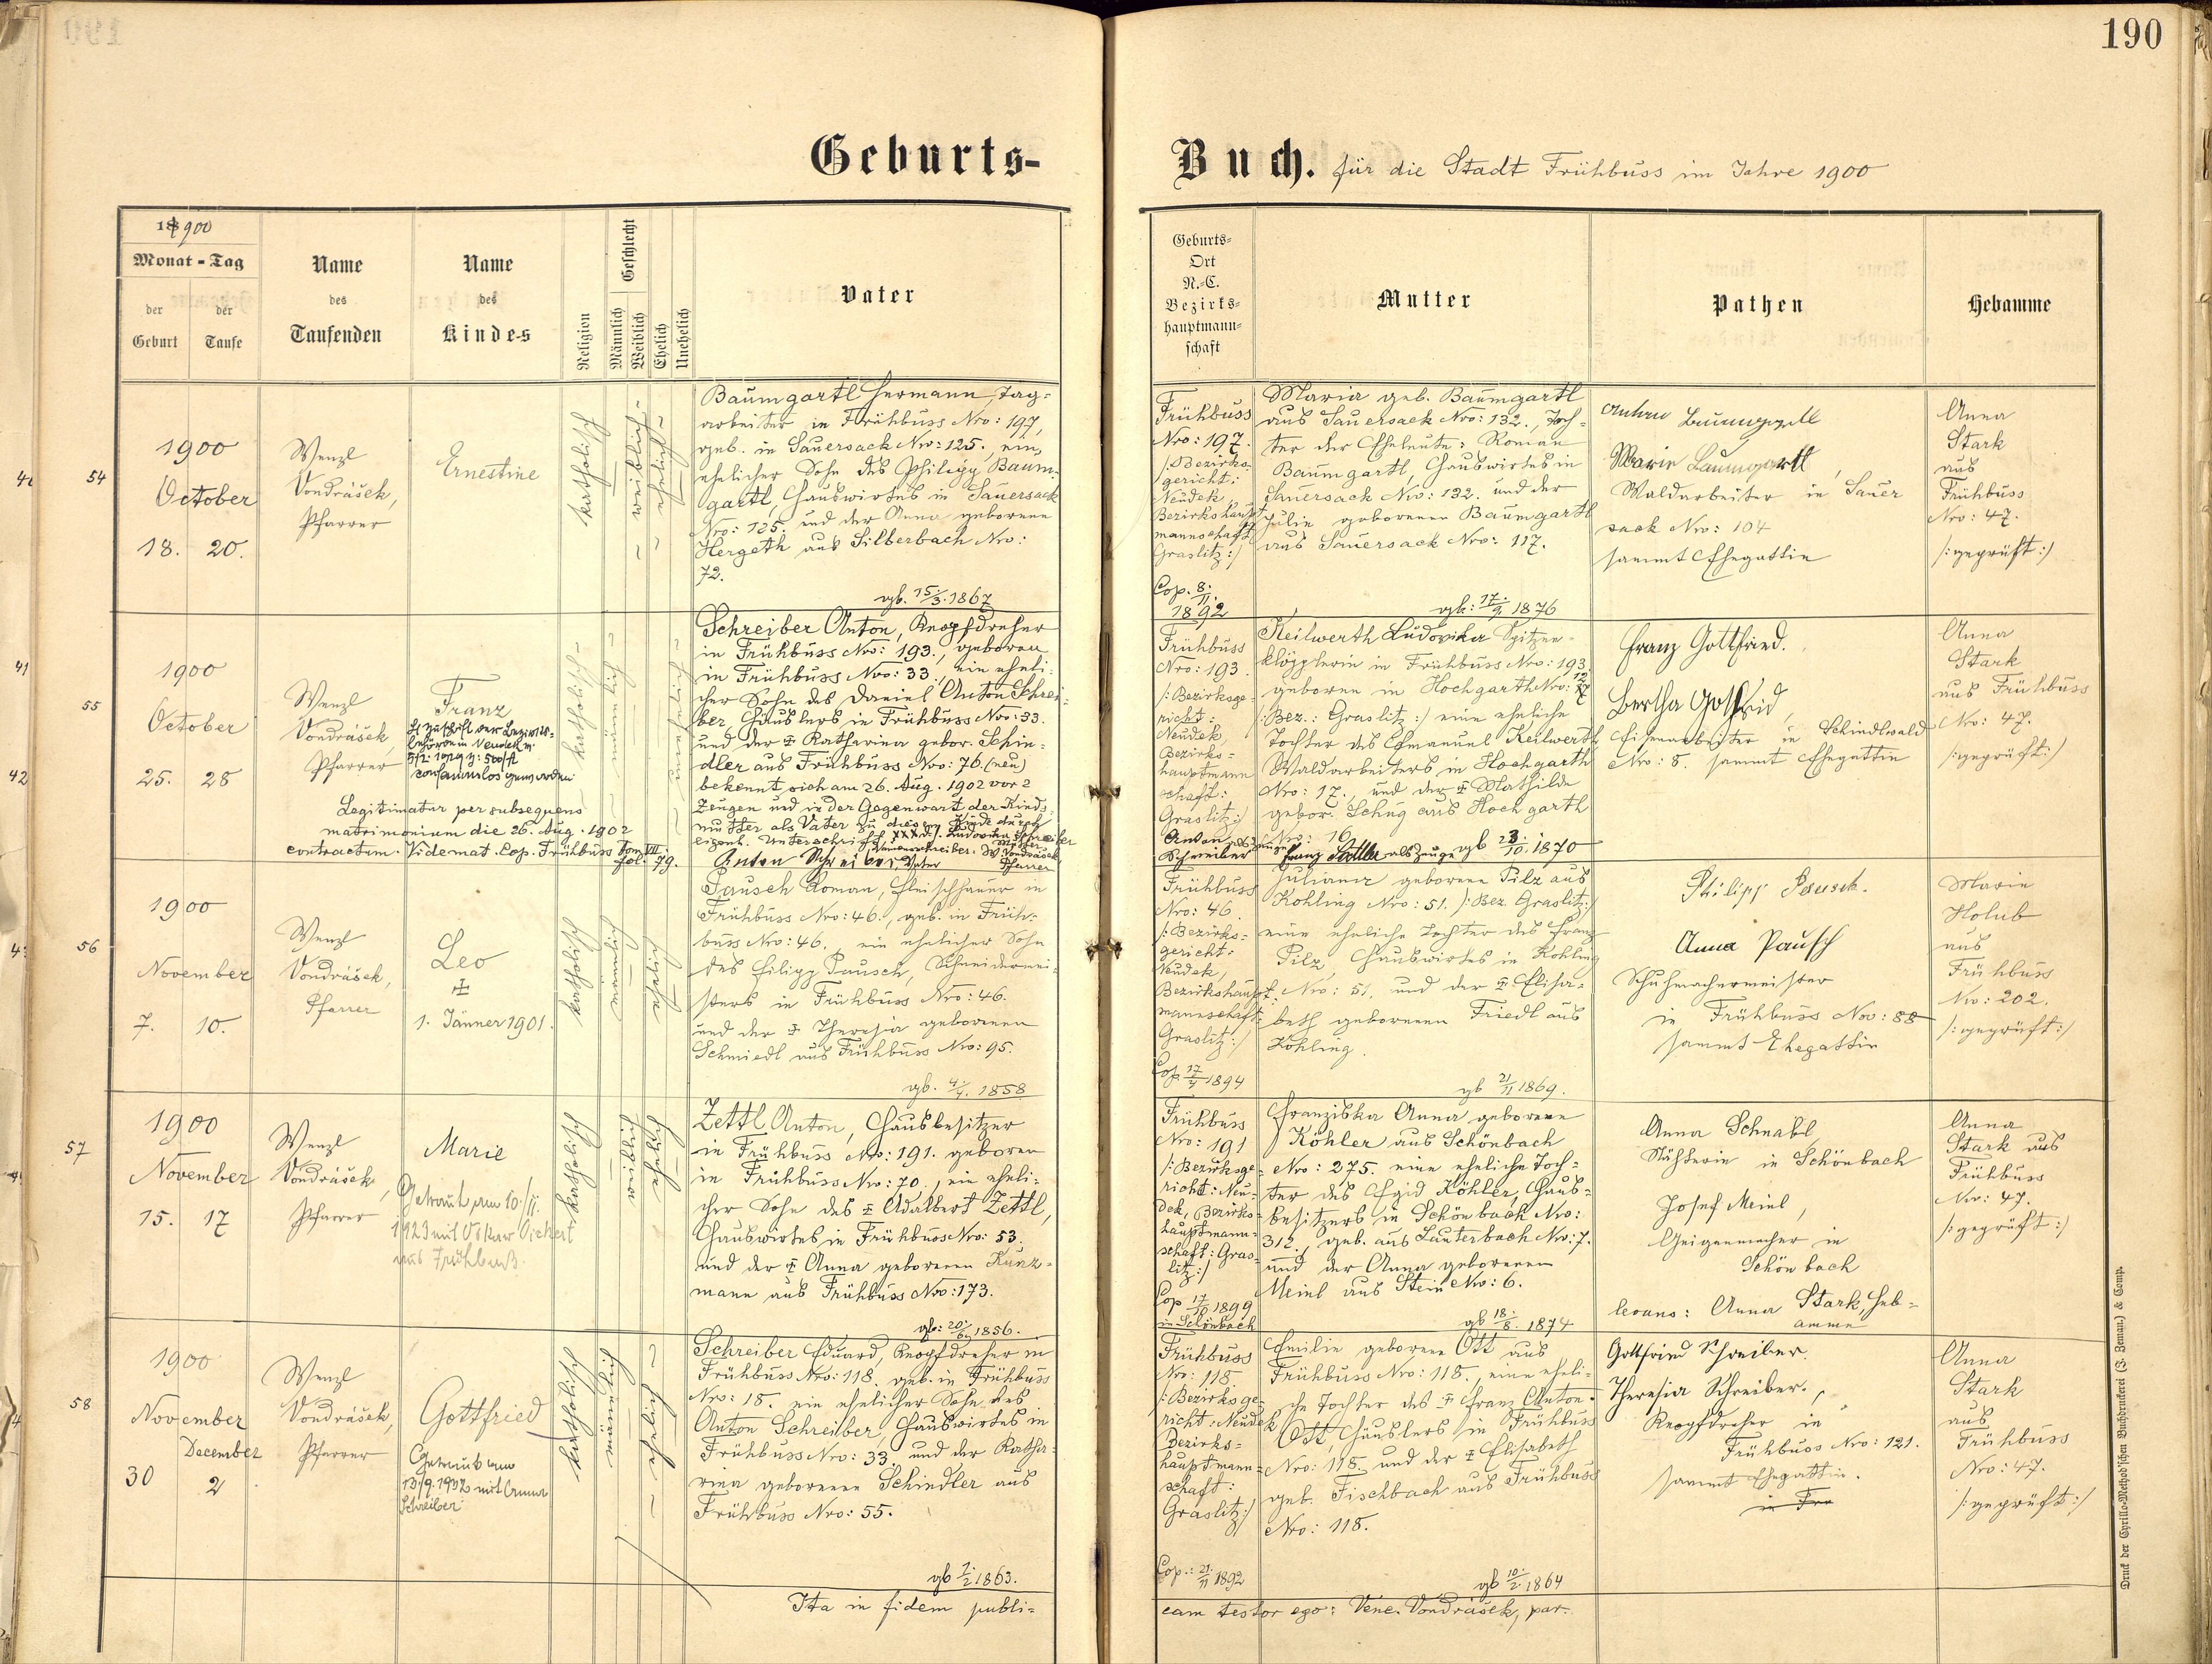 190
Geburts-Buch. für die Stadt Frühbuss im Jahre 1900
1900
Monat - Tag
der Geburt
der Taufe
Name
des
Taufenden
Name
des
Kindes
Religion
Geschlecht
Männlich
Weiblich
Ehelich
Unehelich
Vater
Geburts-
Ort
N.-C.
Bezirks-
hauptmann-
schaft
Mutter
Pathen
Hebamme
54
1900
October
18. 20.
Wenzl
Vondrášek,
Pfarrer
Ernestine
katholisch
- weiblich -
- ehelich -
Baumgartl Hermann, Tag-
arbeiter in Frühbuss Nro: 197,
geb. in Sauersack Nro: 125., ein
ehelicher Sohn des Philipp Baum-
gartl, Hauswirtes in Sauersack
Nro: 125. und der Anna geborene
Hergeth aus Silberbach Nro:
72.
gb. 15./3. 1867
Frühbuss
Nro: 197.
/: Bezirks-
gericht:
Neudek
Bezirkshaupt
mannschaft
Graslitz :/
Cop. 8./11. 1892
Maria geb. Baumgartl
aus Sauersack Nro: 132., Toch-
ter der Eheleute: Roman
Baumgartl, Hauswirtes in
Sauersack Nro: 132. und der
Julie geborenen Baumgartl
aus Sauersack Nro: 117.
gb: 17./9. 1876
Marie Baumgartl,
Waldarbeiter in Sauer
sack Nro: 104
sammt Ehegattin
Anna
Stark
aus
Frühbuss
Nro: 47.
/: geprüft :/
55
1900
October
25. 28
Wenzl
Vondrášek,
Pfarrer
Franz
Legitimatur per subsequens
matrimonium die 26. Aug. 1902
contractum. Videmat. Cop. Frühbuss Tom VII.
fol. 79.
- katholisch -
- männlich -
Schreiber Anton, Knopfdreher
in Frühbuss Nro: 193., geboren
in Frühbuss Nro: 33., ein eheli-
cher Sohn des Daniel Anton Schrei-
ber Häuslers in Frühbuss Nro: 33.
und der † Katharina gebor. Schin-
dler aus Frühbuss Nro: 76. (neu)
bekennt sich am 26. Aug. 1902 vor 2
Zeugen und in der Gegenwart der Kinds-
mutter als Vater zu diesem Kinde durch
eigenh. Unterschrift XXX d. i. Ludovika Schreiber
Mutter
Namensschreiber. W. Vondrášek
Pfarrer
Anton Schreiber Vater
Frühbuss
Nro: 193
/: Bezirksge-
richt:
Neudek,
Bezirks-
hauptmann
schaft:
Graslitz :/
Anton als Zeuge
Schreiber
Keilwerth Ludovika Spitzen-
klöpplerin in Frühbuss Nro: 193.
geboren in Hochgarth Nro: 17
/: Bez.: Graslitz :/ eine eheliche
Tochter des Emanuel Keilwerth
Waldarbeiters in Hochgarth
Nro: 17., und der † Mathilde
gebor. Schug aus Hochgarth
Nro: 16
Franz Sattler als Zeuge gb 23./10. 1870
Franz Gottfried.
Bertha Gottfrid,
Eisenarbeiter in Schindlwald
Nro: 8. sammt Ehegattin
Anna
Stark
aus Frühbuss
Nro: 47.
/: geprüft :/
56
1900
November
7. 10.
Wenzl
Vondrášek,
Pfarrer
Leo
✠
1. Jänner 1901.
katholisch
männlich
ehelich
Pausch Roman, Fleischhauer in
Frühbuss Nro: 46., geb. in Früh-
buss Nro: 46., ein ehelicher Sohn
des Filipp Pausch, Schneidermei-
sters in Frühbuss Nro: 46.
und der † Theresia geborenen
Schmiedl aus Frühbuss Nro: 95.
gb. 4./4. 1858
Frühbuss
Nro: 46.
/: Bezirks-
gericht:
Neudek,
Bezirkshaupt-
mannschaft:
Graslitz :/
Cop. 17/4 1894
Juliana geborene Pilz aus
Kohling Nro: 51. /: Bez. Graslitz :/
eine eheliche Tochter des Franz
Pilz, Hauswirtes in Kohling
Nro: 51. und der † Elisa-
beth geborenen Friedl aus
Kohling.
gb 21/11 1869.
Philipp Pausch.
Anna Pausch
Schuhmachermeister
in Frühbuss Nro: 88
sammt Ehegattin
Marie
Holub
aus
Frühbuss
Nro: 202.
/: geprüft :/
57
1900
November
15. 17
Wenzl
Vondrášek,
Pfarrer
Marie
Getraut am 10./11.
1923 mit Oskar
aus Frühbuß.
katholisch
weiblich
ehelich
Zettl Anton, Hausbesitzer
in Frühbuss Nro: 191. geboren
in Frühbuss Nro: 70., ein eheli-
cher Sohn des † Adalbert Zettl,
Hauswirtes in Frühbuss Nro: 53.
und der † Anna geborenen Kunz-
mann aus Frühbuss Nro: 173.
gb: 20./6. 1856.
Frühbuss
Nro: 191
/: Bezirksge-
richt: Neu-
dek, Bezirks-
hauptmann-
schaft: Gras-
litz :/
Cop 17/10 1899
in Schönbach
Franziska Anna geborene
Köhler aus Schönbach
Nro: 275. eine eheliche Toch-
ter des Egid Köhler, Haus-
besitzers in Schönbach Nro:
312., geb. aus Lauterbach Nro: 7.
und der Anna geborenen
Meinl aus Stein Nro: 6.
gb 18./8. 1874
Anna Schnabl
Nähterin in Schönbach
Josef Meinl,
Geigenmacher in
Schönbach
levans: Anna Stark, Heb-
amme
Anna
Stark aus
Frühbuss
Nro: 47.
/: geprüft :/
58
1900
November
December
30 2
Wenzl
Vondrášek,
Pfarrer
Gottfried
Getraut am
13/9. 1932 mit Anna
Schreiber
katholisch
männlich
- ehelich -
Schreiber Eduard, Knopfdreher in
Frühbuss Nro: 118. geb. in Frühbuss
Nro: 18. ein ehelicher Sohn des
Anton Schreiber, Hauswirtes in
Frühbuss Nro: 33. und der Katha-
rina geborenen Schindler aus
Frühbuss Nro: 55.
gb 7./2. 1863.
Frühbuss
Nro: 118
/: Bezirksge-
richt: Neudek
Bezirks-
hauptmann-
schaft:
Graslitz :/
Cop.: 21./11 1892
Emilie geborene Ott aus
Frühbuss Nro: 118., eine eheli-
che Tochter des † Franz Anton
Ott, Häuslers in Frühbuss
Nro: 118. und der † Elisabeth
geb. Fischbach aus Frühbuss
Nro: 118.
gb 10./2. 1864
Gottfried Schreiber.
Theresia Schreiber.,
Knopfdreher in
Frühbuss Nro: 121.
sammt Ehegattin.
in Fru
Anna
Stark
aus
Frühbuss
Nro: 47.
/: geprüft :/
Ita in fidem publi-
cam testor ego: Venc. Vondrášek, par.
Druck der Cyrillo-Method'schen Buchdruckerei (J. Zeman) & Comp.